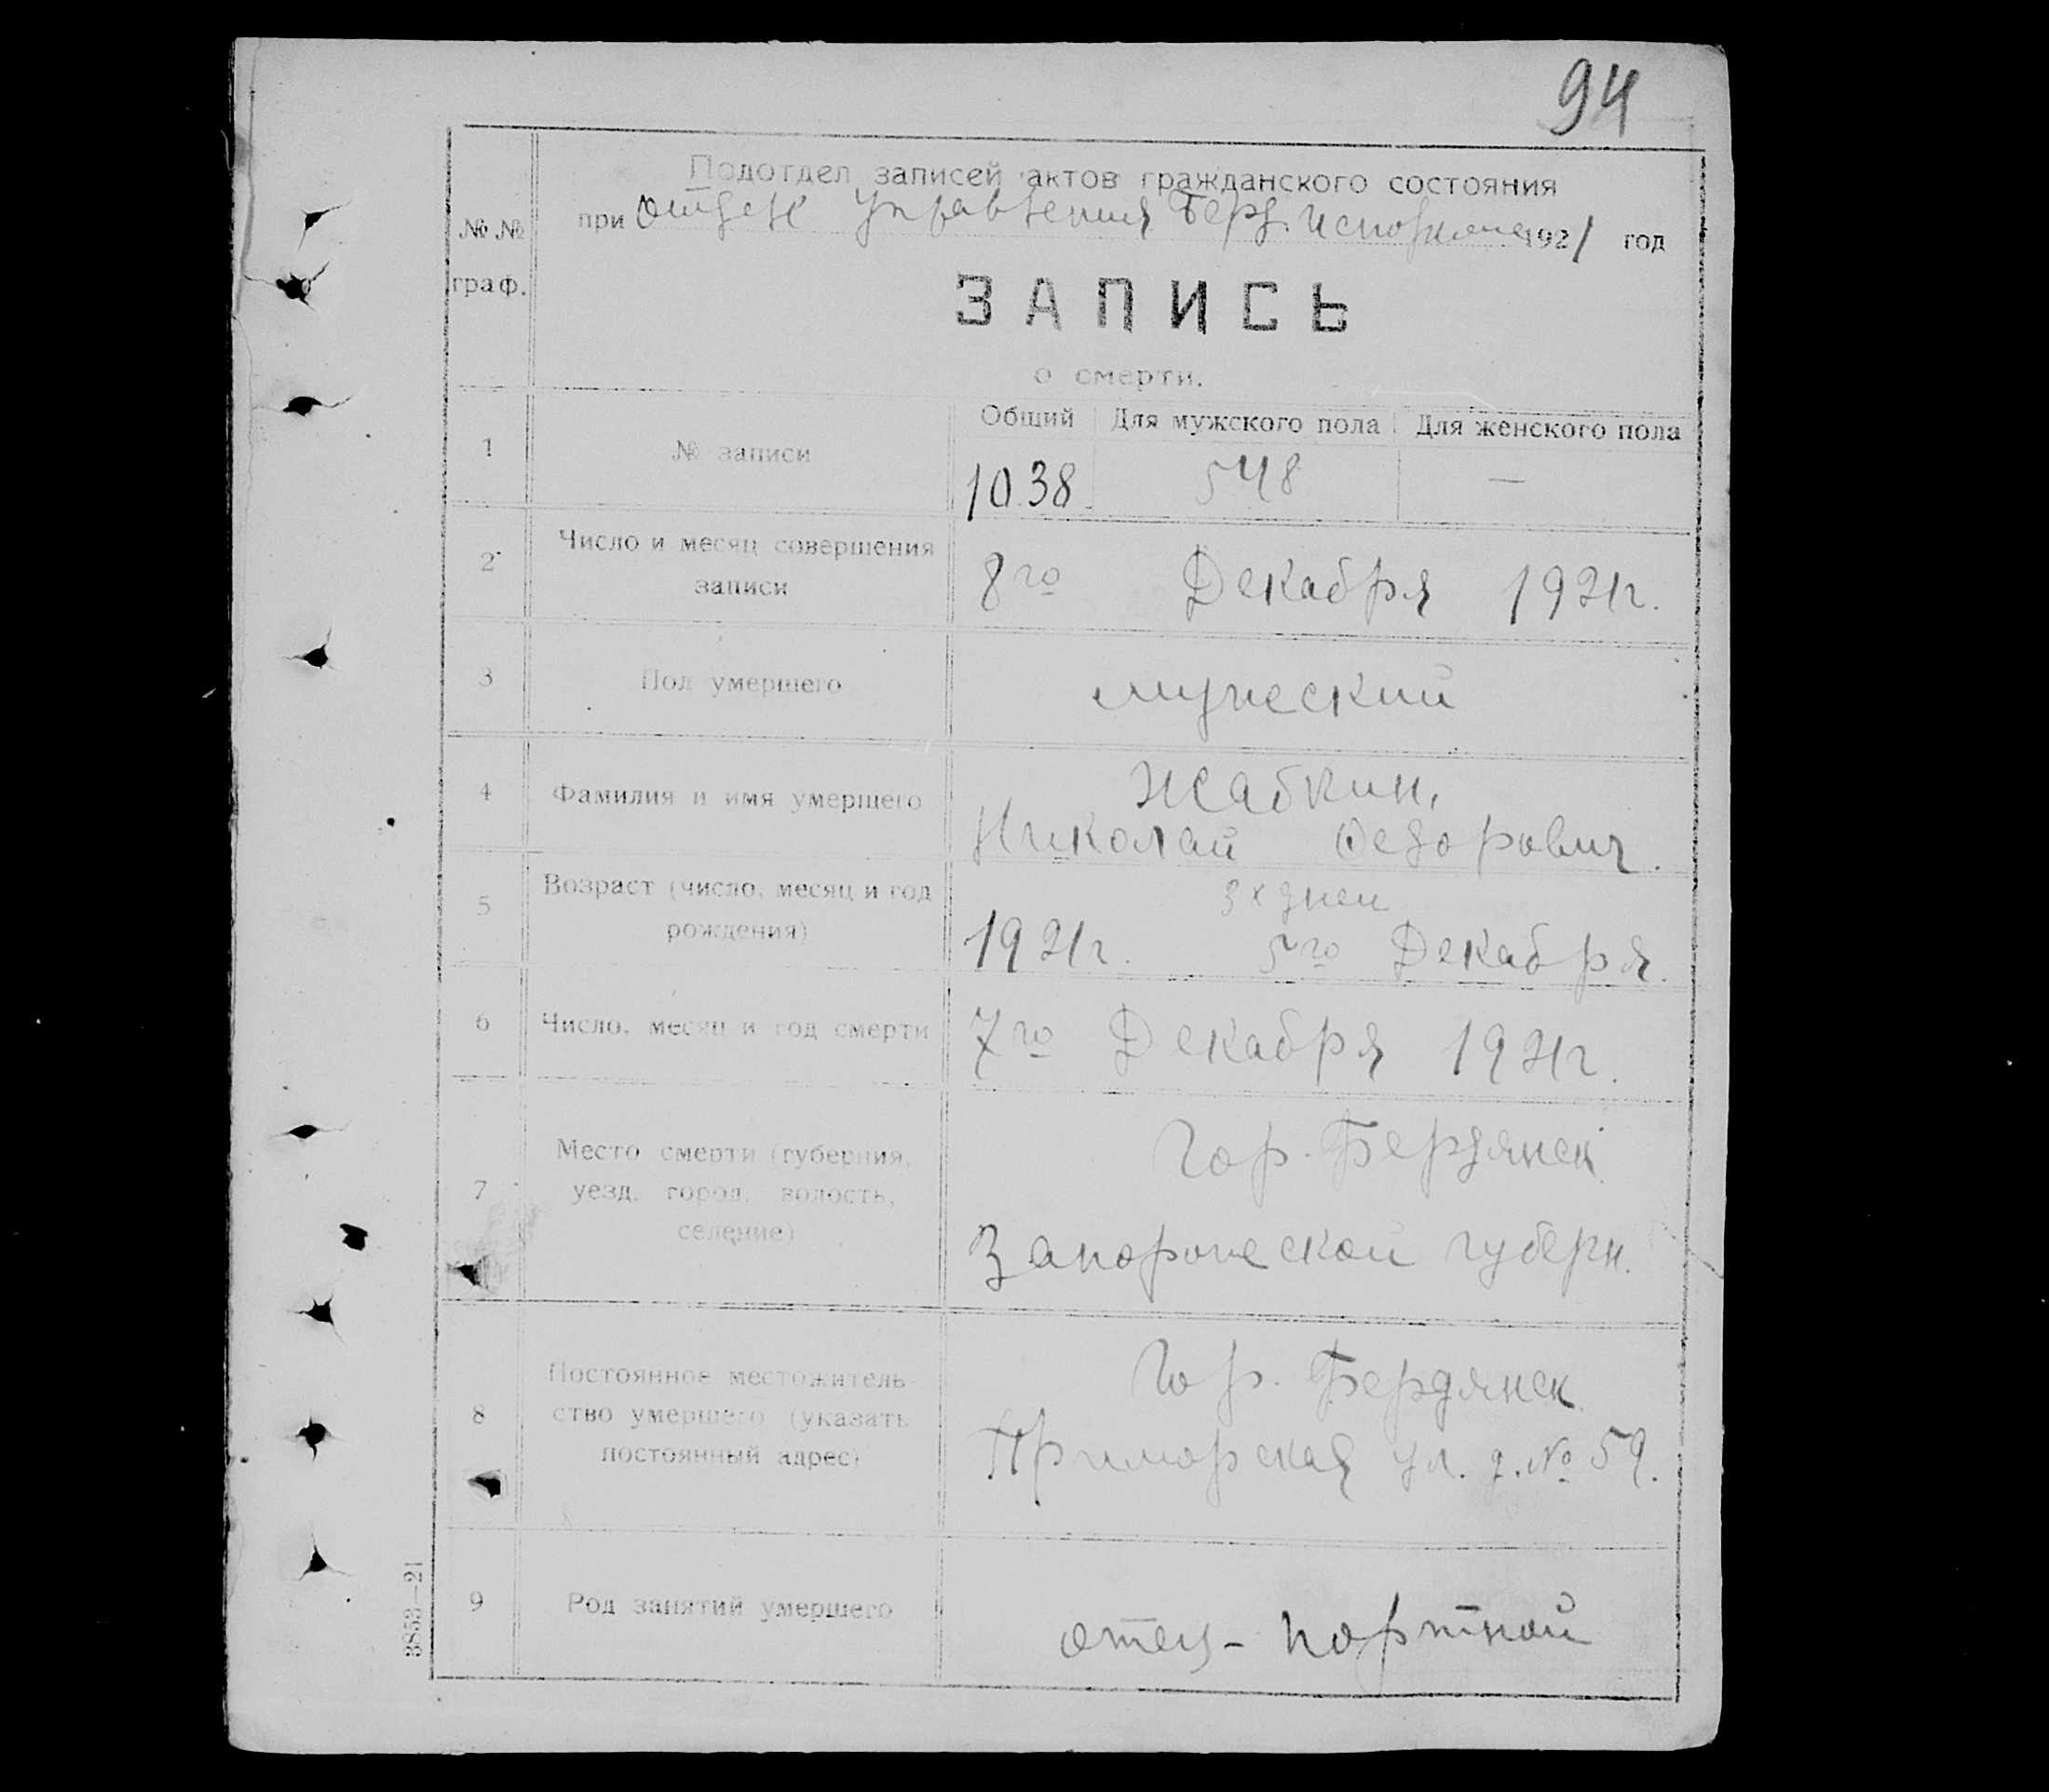 94
Подотдел записей актов гражданского состояния
при отделе Управления Берд. Исполкома 1921 год
№ №
граф.
ЗАПИСЬ
о смерти.
Общий Для мужского пола Для женского пола
1 № записи 1038 548 —
2 Число и месяц совершения
записи
8го Декабря 1921г.
3 Пол умершего мужеский
4 Фамилия и имя умершего Жабкин,
Николай Федорович.
5 Возраст (число, месяц и год
рождения)
3х дней
1921г. 5го Декабря.
6 Число, месяц и год смерти 7го Декабря 1921г.
7 Место смерти (губерния,
уезд, город, волость,
селение)
Гор. Бердянск
Запорожской губерн.
8 Постоянное местожитель-
ство умершего (указать
постоянный адрес)
Гор. Бердянск
Приморская ул. д. № 59.
9 Род занятий умершего отец - портной
3853—21